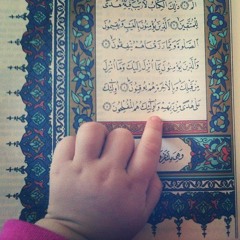 ذٰلِكَ الْكِتَابُ لَا رَيْبَ فِيهِ هُدًى
لِلْمُتَّقِينَ الَّذِينَ يُؤْمِنُونَ بِالْغَيْبِ وَيُقِيمُونَ
الصَّلٰوةَ وَمِمَّا رَزَقْنَاهُمْ يُنْفِقُونَ
وَالَّذِينَ يُؤْمِنُونَ بِمَا أُنْزِلَ إِلَيْكَ وَمَا أُنْزِلَ
مِنْ قَبْلِكَ وَبِالْاٰخِرَةِ هُمْ يُوقِنُونَ أُولٰئِكَ
عَلٰى هُدًى مِنْ رَبِّهِمْ وَأُولٰئِكَ هُمُ الْمُفْلِحُونَ